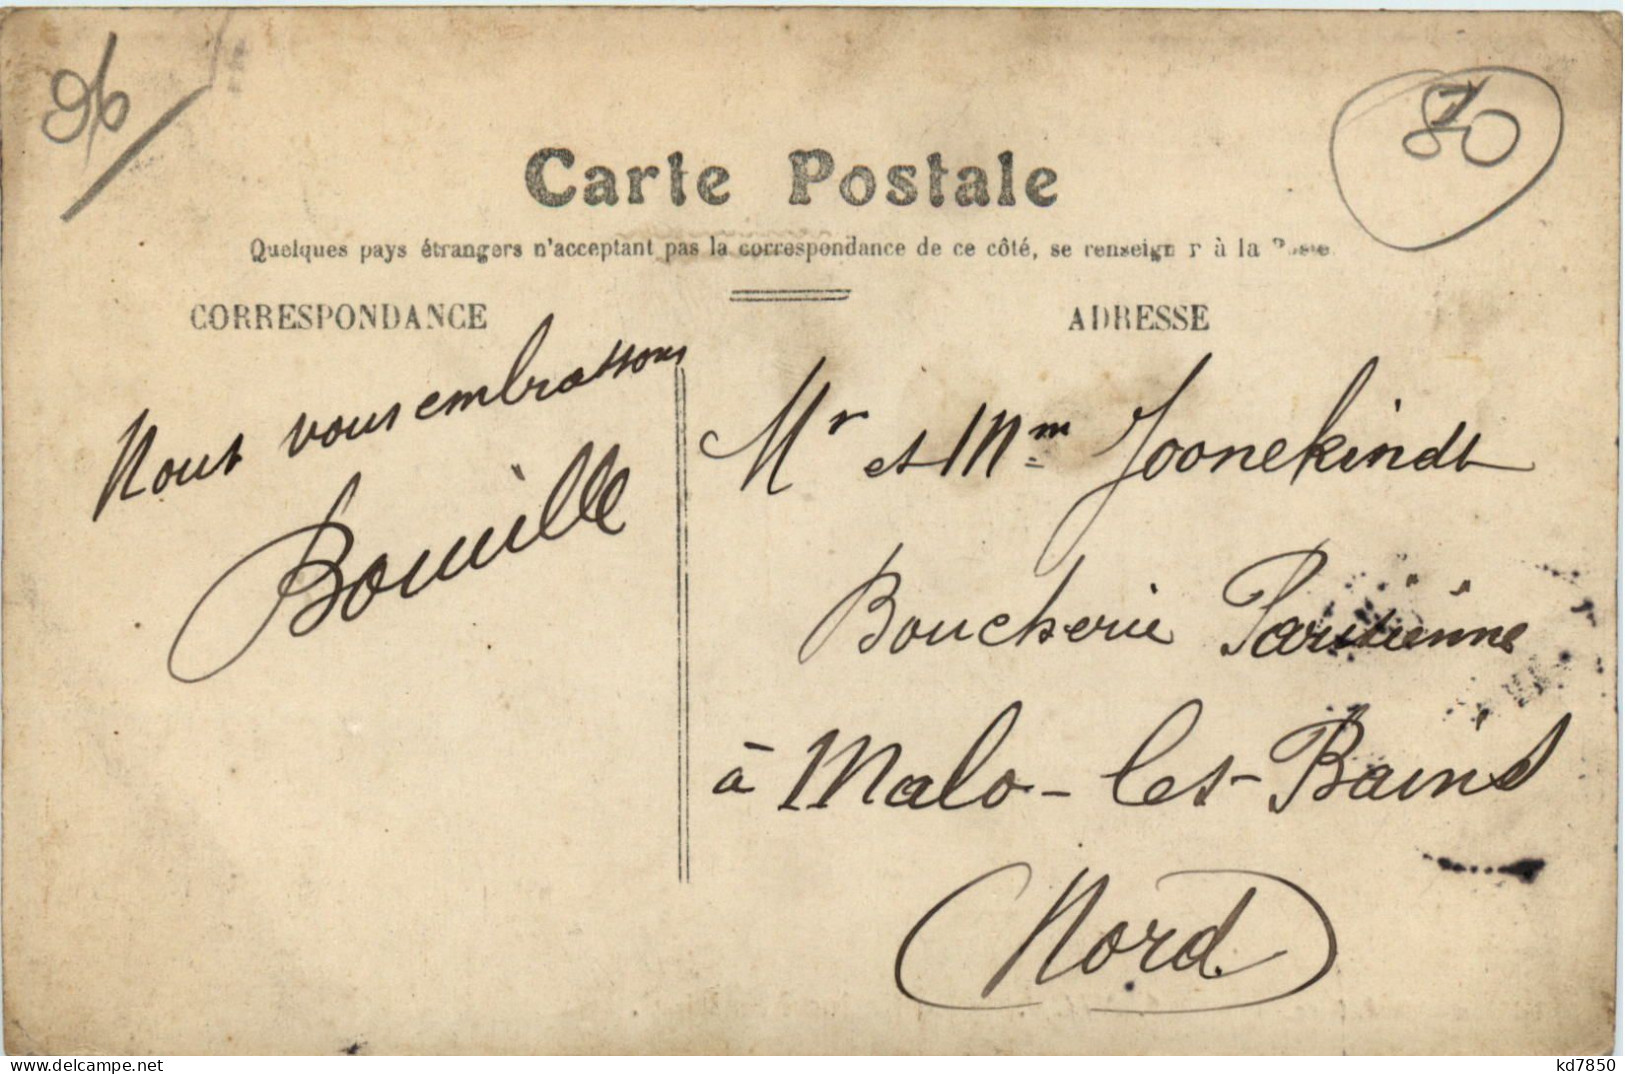 96
80
Carte Postale
Quelques pays étrangers n'acceptant pas la correspondance de ce côté, se renseign r à la Poste
CORRESPONDANCE
ADRESSE
Nous vous embrassons
Bouuille
Mr et Mm Joonekindt
Boucherie Parisienne
à Malo-les-Bains
(Nord)
kd7850